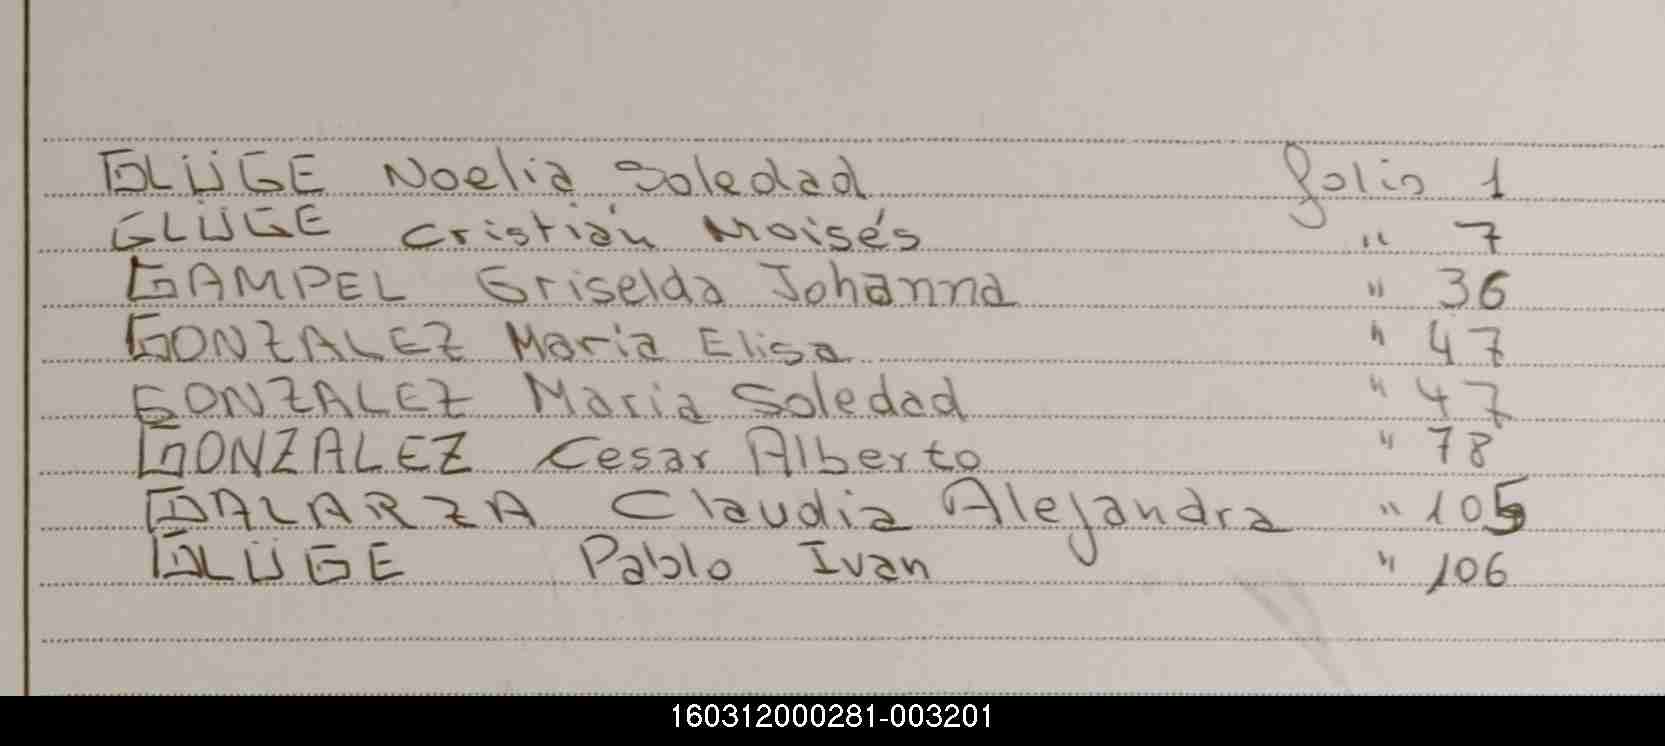 GLÜGE Noelia Soledad folio 1
GLÜGE Cristián Moisés " 7
GAMPEL Griselda Johanna " 36
GONZALEZ Maria Elisa " 47
GONZALEZ Maria Soledad " 47
GONZALEZ Cesar Alberto " 78
GALARZA Claudia Alejandra " 105
GLÜGE Pablo Ivan " 106
160312000281-003201